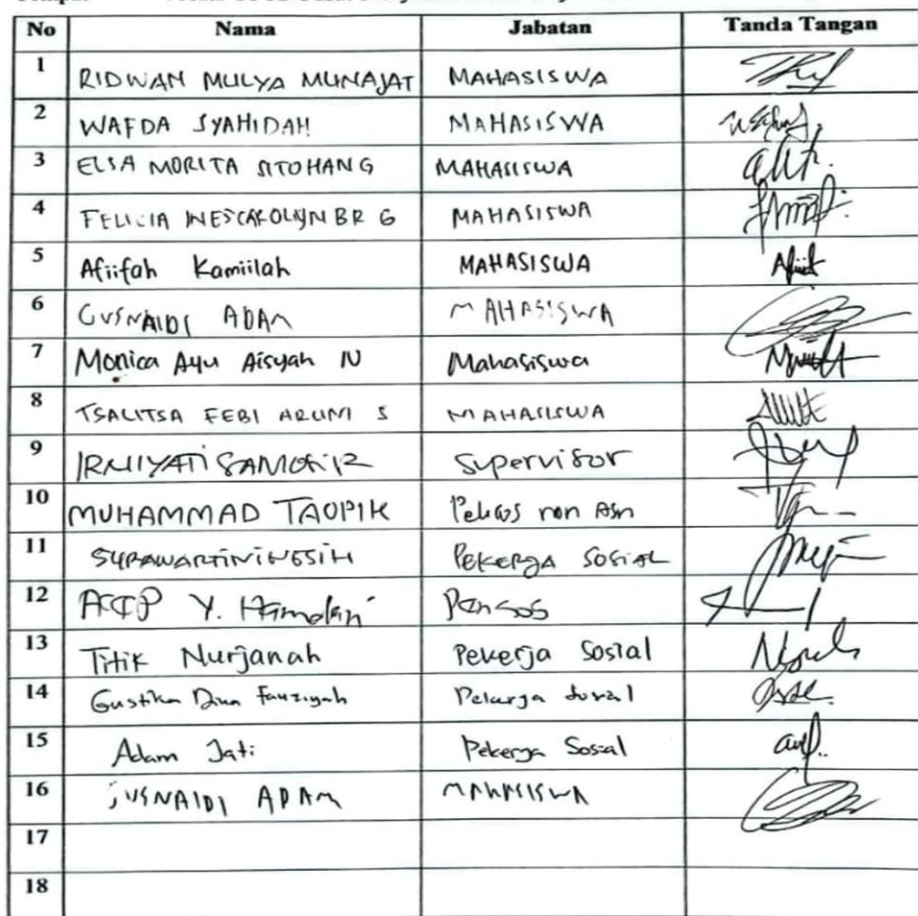 No Nama Jabatan Tanda Tangan
1 RIDWAN MULYA MUNAJAT MAHASISWA
2 WAFDA SYAHIDAH MAHASISWA
3 ELSA MORITA SITOHANG MAHASISWA
4 FELICIA INESCAROLLYN BR G MAHASISWA
5 Afiifah Kamiilah MAHASISWA
6 GUSNAIDI ADAM MAHASISWA
7 Monica Ayu Aisyah N Mahasiswa
8 TSALITSA FEBI ARUMI S MAHASISWA
9 IRMIYATI Supervisor
10 MUHAMMAD TAOPIK Peksos non Asn
11 PEKERJA SOSIAL
12 Y. Hamdani Pensos
13 Titik Nurjanah Pekerja Sosial
14 Gustika Dina Fauziyah Pekerja Sosial
15 Adam Jati Pekerja Sosial
16 GUSNAIDI ADAM MAHASISWA
17
18